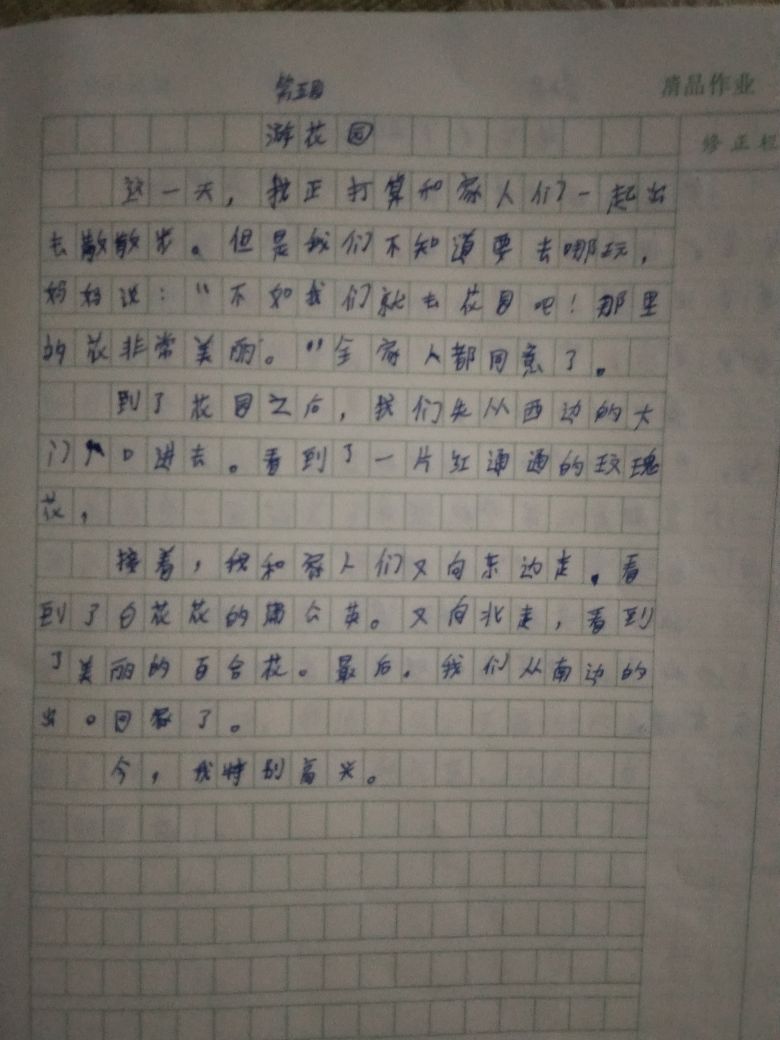 第五园
清品作业
游花园
修正栏
这一天，我正打算和家人们一起出
去散散步。但是我们不知道要去哪玩，
妈妈说：“不如我们就去花园吧！那里
的花非常美丽。”全家人都同意了。
到了花园之后，我们先从西边的大
门口进去。看到了一片红通通的玫瑰
花，
接着，我和家人们又向东边走。看
到了白花花的蒲公英。又向北走，看到
了美丽的百合花。最后。我们从南边的
出口回家了。
今，我特别高兴。